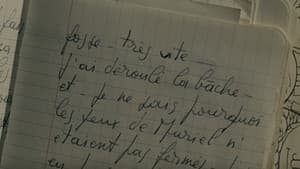 fosse - très vite -
j'ai déroulé la bâche -
et - je ne sais pourquoi
les yeux de Muriel n'
étaient pas fermés